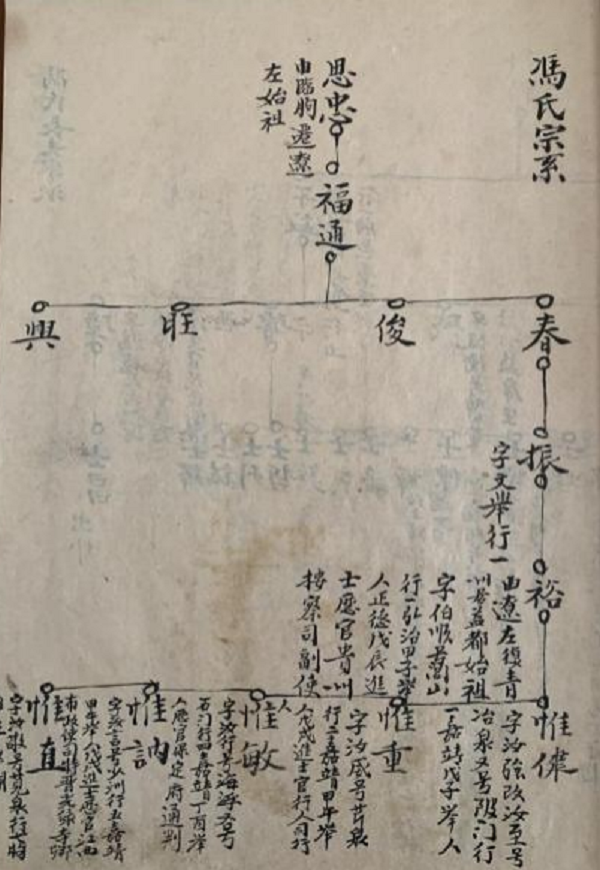 馮氏宗系
思忠
由臨朐遷遼
左始祖
福通
春
俊
旺
興
振
字文舉行一
裕
由遼左復青
州 益都始祖
字伯順 山
行一弘治甲子舉
人正德戊辰進
士應官貴州
按察司副使
惟健
字汝強改汝至号
冶泉又号陂门行
一嘉靖戊子舉人
惟重
字汝威号芹泉
行二嘉靖甲午舉
人戊戌進士官行人司行
人
惟敏
字汝行号海浮又号
石门行四嘉靖丁酉舉
人應官保定府通判
惟訥
字汝言号少洲行五嘉靖
甲午舉人戊戌進士應官江西
布政使司 光禄寺卿
惟直